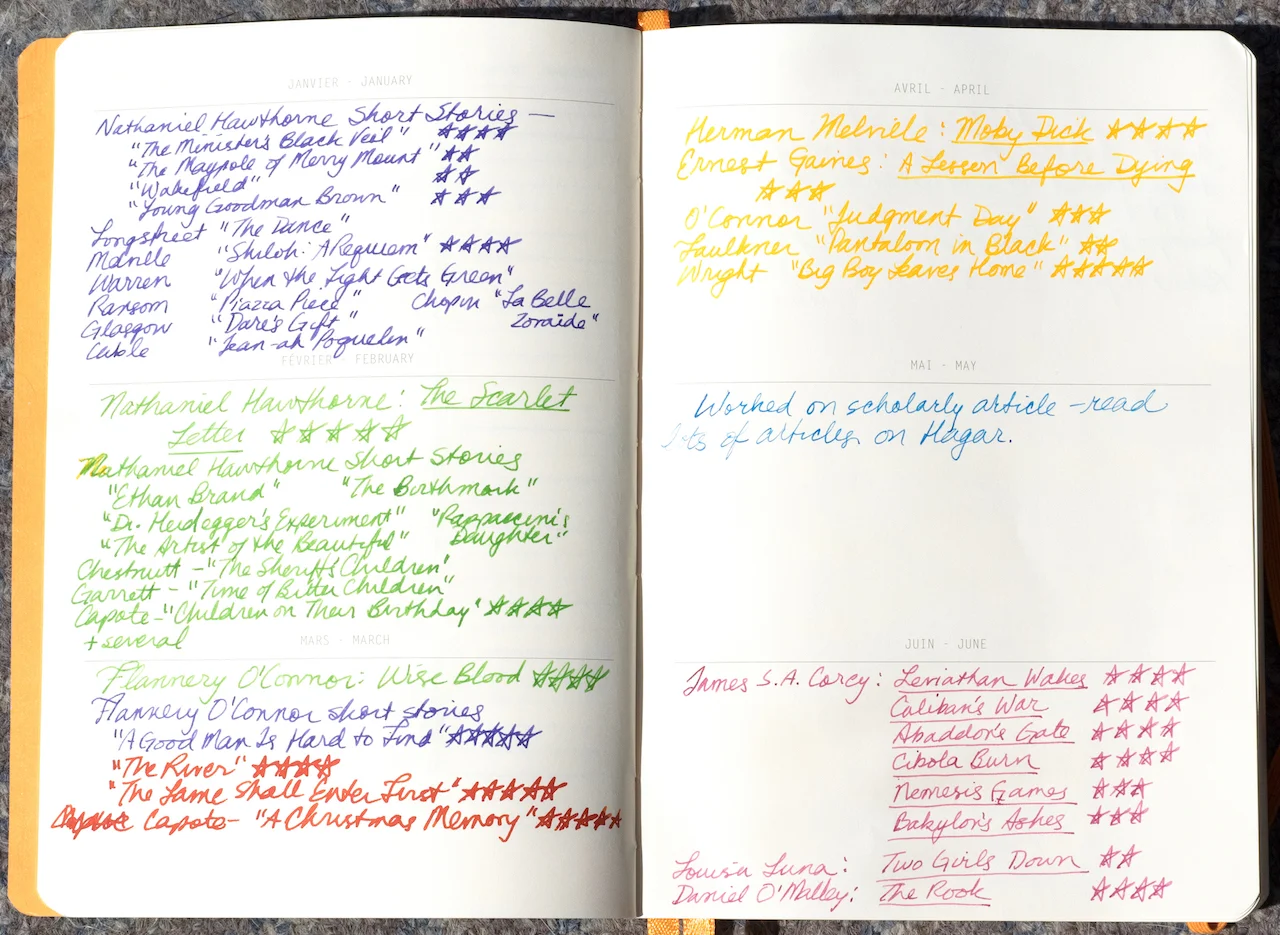 JANVIER - JANUARY
Nathaniel Hawthorne Short Stories —
"The Minister's Black Veil" ☆☆☆☆
"The Maypole of Merry Mount" ☆☆
"Wakefield" ☆☆
"Young Goodman Brown" ☆☆☆
Longstreet "The Dance"
Melville "Shiloh: A Requiem" ☆☆☆☆
Warren "When the Light Gets Green"
Ransom "Piazza Piece" Chopin "La Belle
Glasgow "Dare's Gift" Zoraïde"
Cable "Jean-ah Poquelin"
FÉVRIER - FEBRUARY
Nathaniel Hawthorne: The Scarlet
Letter ☆☆☆☆☆
Nathaniel Hawthorne Short Stories
"Ethan Brand" "The Birthmark"
"Dr. Heidegger's Experiment" "Rappaccini's
"The Artist of the Beautiful" Daughter"
Chestnutt - "The Sheriff's Children'
Garrett - "Time of Bitter Children"
Capote - "Children on Their Birthday" ☆☆☆☆
+ several
MARS - MARCH
Flannery O'Connor: Wise Blood ☆☆☆☆
Flannery O'Connor short stories
"A Good Man Is Hard to Find" ☆☆☆☆☆
"The River" ☆☆☆☆
"The Lame Shall Enter First" ☆☆☆☆☆
Capote - "A Christmas Memory" ☆☆☆☆☆
AVRIL - APRIL
Herman Melville: Moby Dick ☆☆☆☆
Ernest Gaines: A Lesson Before Dying
☆☆☆
O'Connor "Judgment Day" ☆☆☆
Faulkner "Pantaloon in Black" ☆☆
Wright "Big Boy Leaves Home" ☆☆☆☆☆
MAI - MAY
Worked on scholarly article - read
lots of articles on Hagar.
JUIN - JUNE
James S.A. Corey: Leviathan Wakes ☆☆☆☆
Caliban's War ☆☆☆☆
Abaddon's Gate ☆☆☆☆
Cibola Burn ☆☆☆☆
Nemesis Games ☆☆☆
Babylon's Ashes ☆☆☆
Louisa Luna: Two Girls Down ☆☆
Daniel O'Malley: The Rook ☆☆☆☆